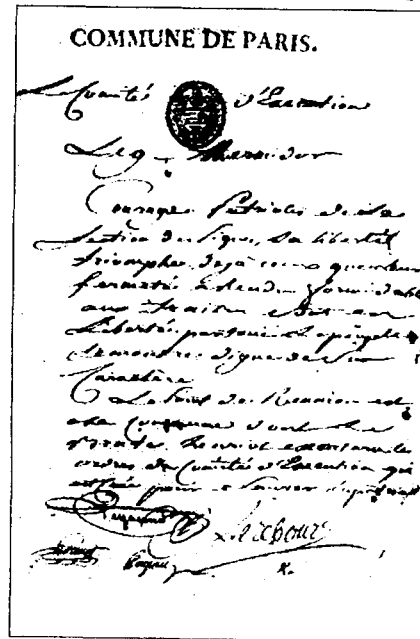 COMMUNE DE PARIS.
Comités d'Execution
Le 9 Thermidor
Courage Patriotes de la
Section des Piques, La liberté
triomphe deja ceux que leur
fermeté a rendu formidable
aux traitres sont en
Liberté, partout le peuple
se montre digne de son
Caractere
Le point de Reunion est
a la Commune dont le
brave henriot executera les
ordres du Comités d'Execution qui
est crée pour Sauver
Lerebours